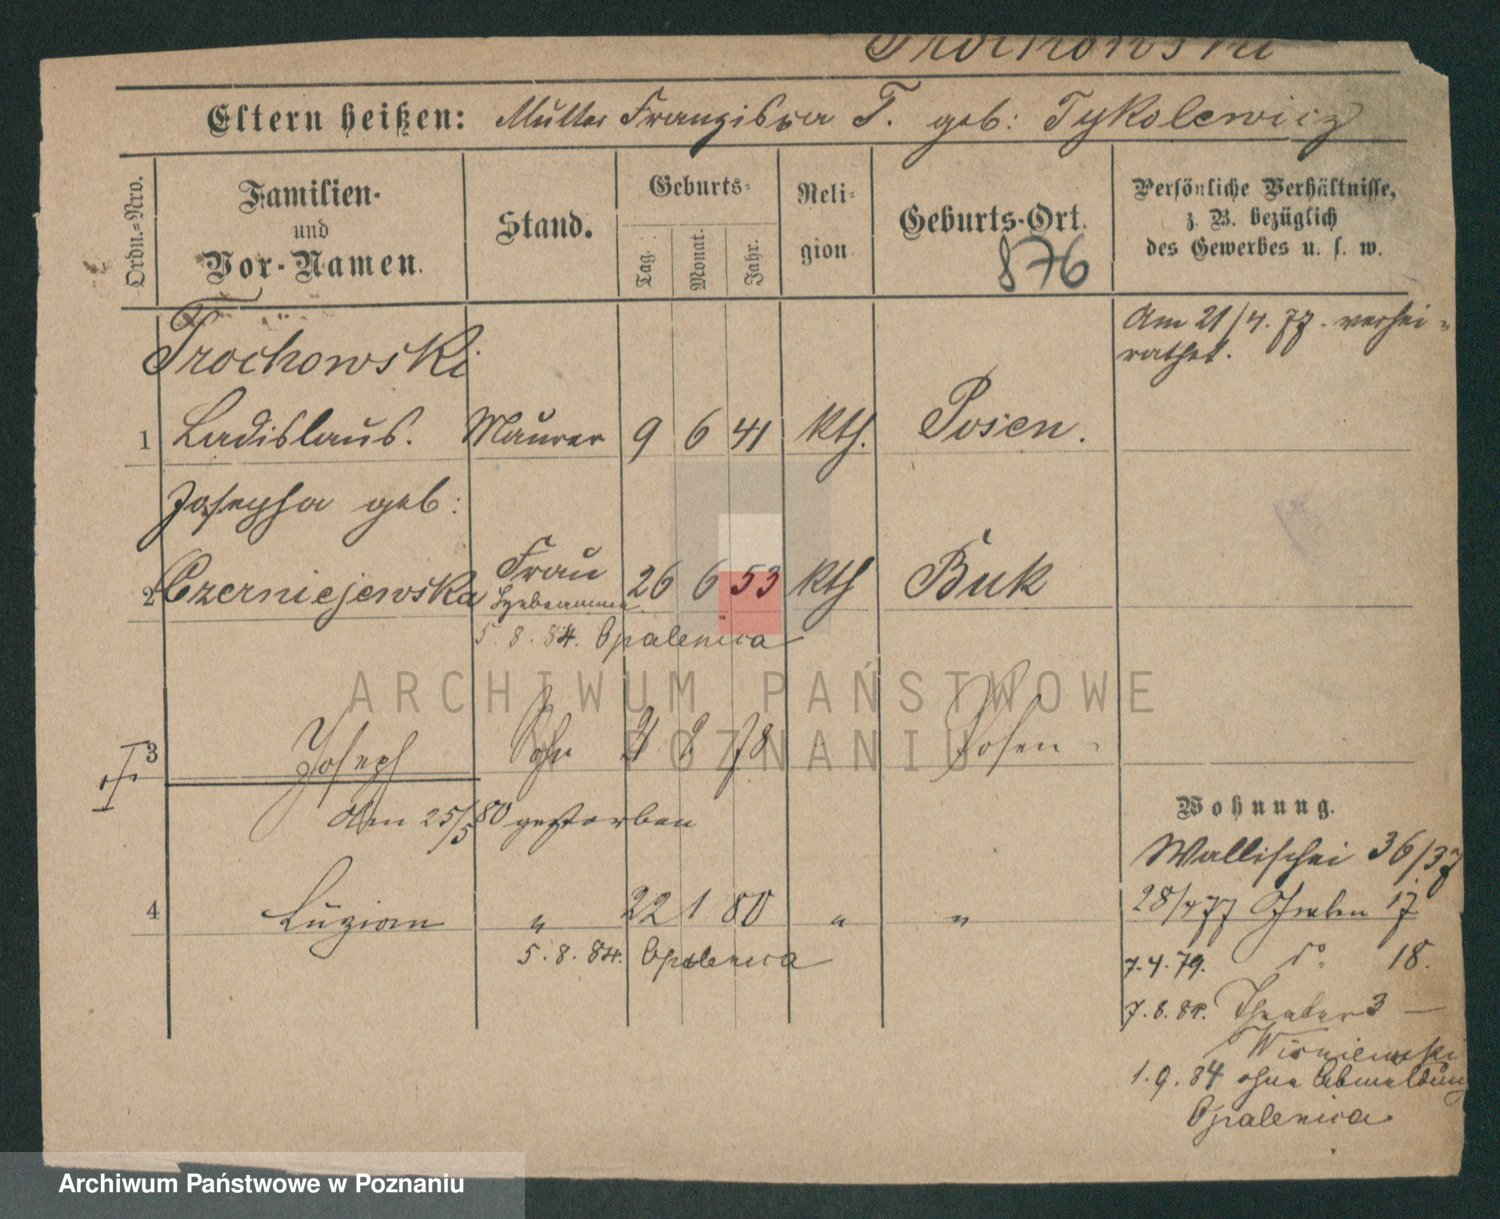 Trochowski
Eltern heißen: Mutter Franziska T. geb: Tykolewicz
Ordn.-Nro.
Familien- und Vor-Namen.
Stand.
Geburts-
Tag.
Monat.
Jahr.
Religion
Geburts-Ort.
876
Persönliche Verhältnisse,
z. B. bezüglich
des Gewerbes u. s. w.
Am 21/4. 77. verhei-
rathet.
Trochowski
1 Ladislaus. Maurer 9 6 41 kth. Posen.
Josepha geb:
2 Czerniejewska Frau 26 6 53 kth Buk
Hebamme
5. 8. 84. Opalenica
3 Joseph Sohn 78 Posen
Am 25/5 80 gestorben
4 Luzian " 22 1 80 " "
5. 8. 84. Opalenica
Wohnung.
Wallischei 36/37
28/4 77 Graben 17
7. 4. 79. do 18.
Theater 3
Wisniewski
1. 9. 84 ohne Abmeldung
Opalenica
ARCHIWUM PAŃSTWOWE
W POZNANIU
Archiwum Państwowe w Poznaniu